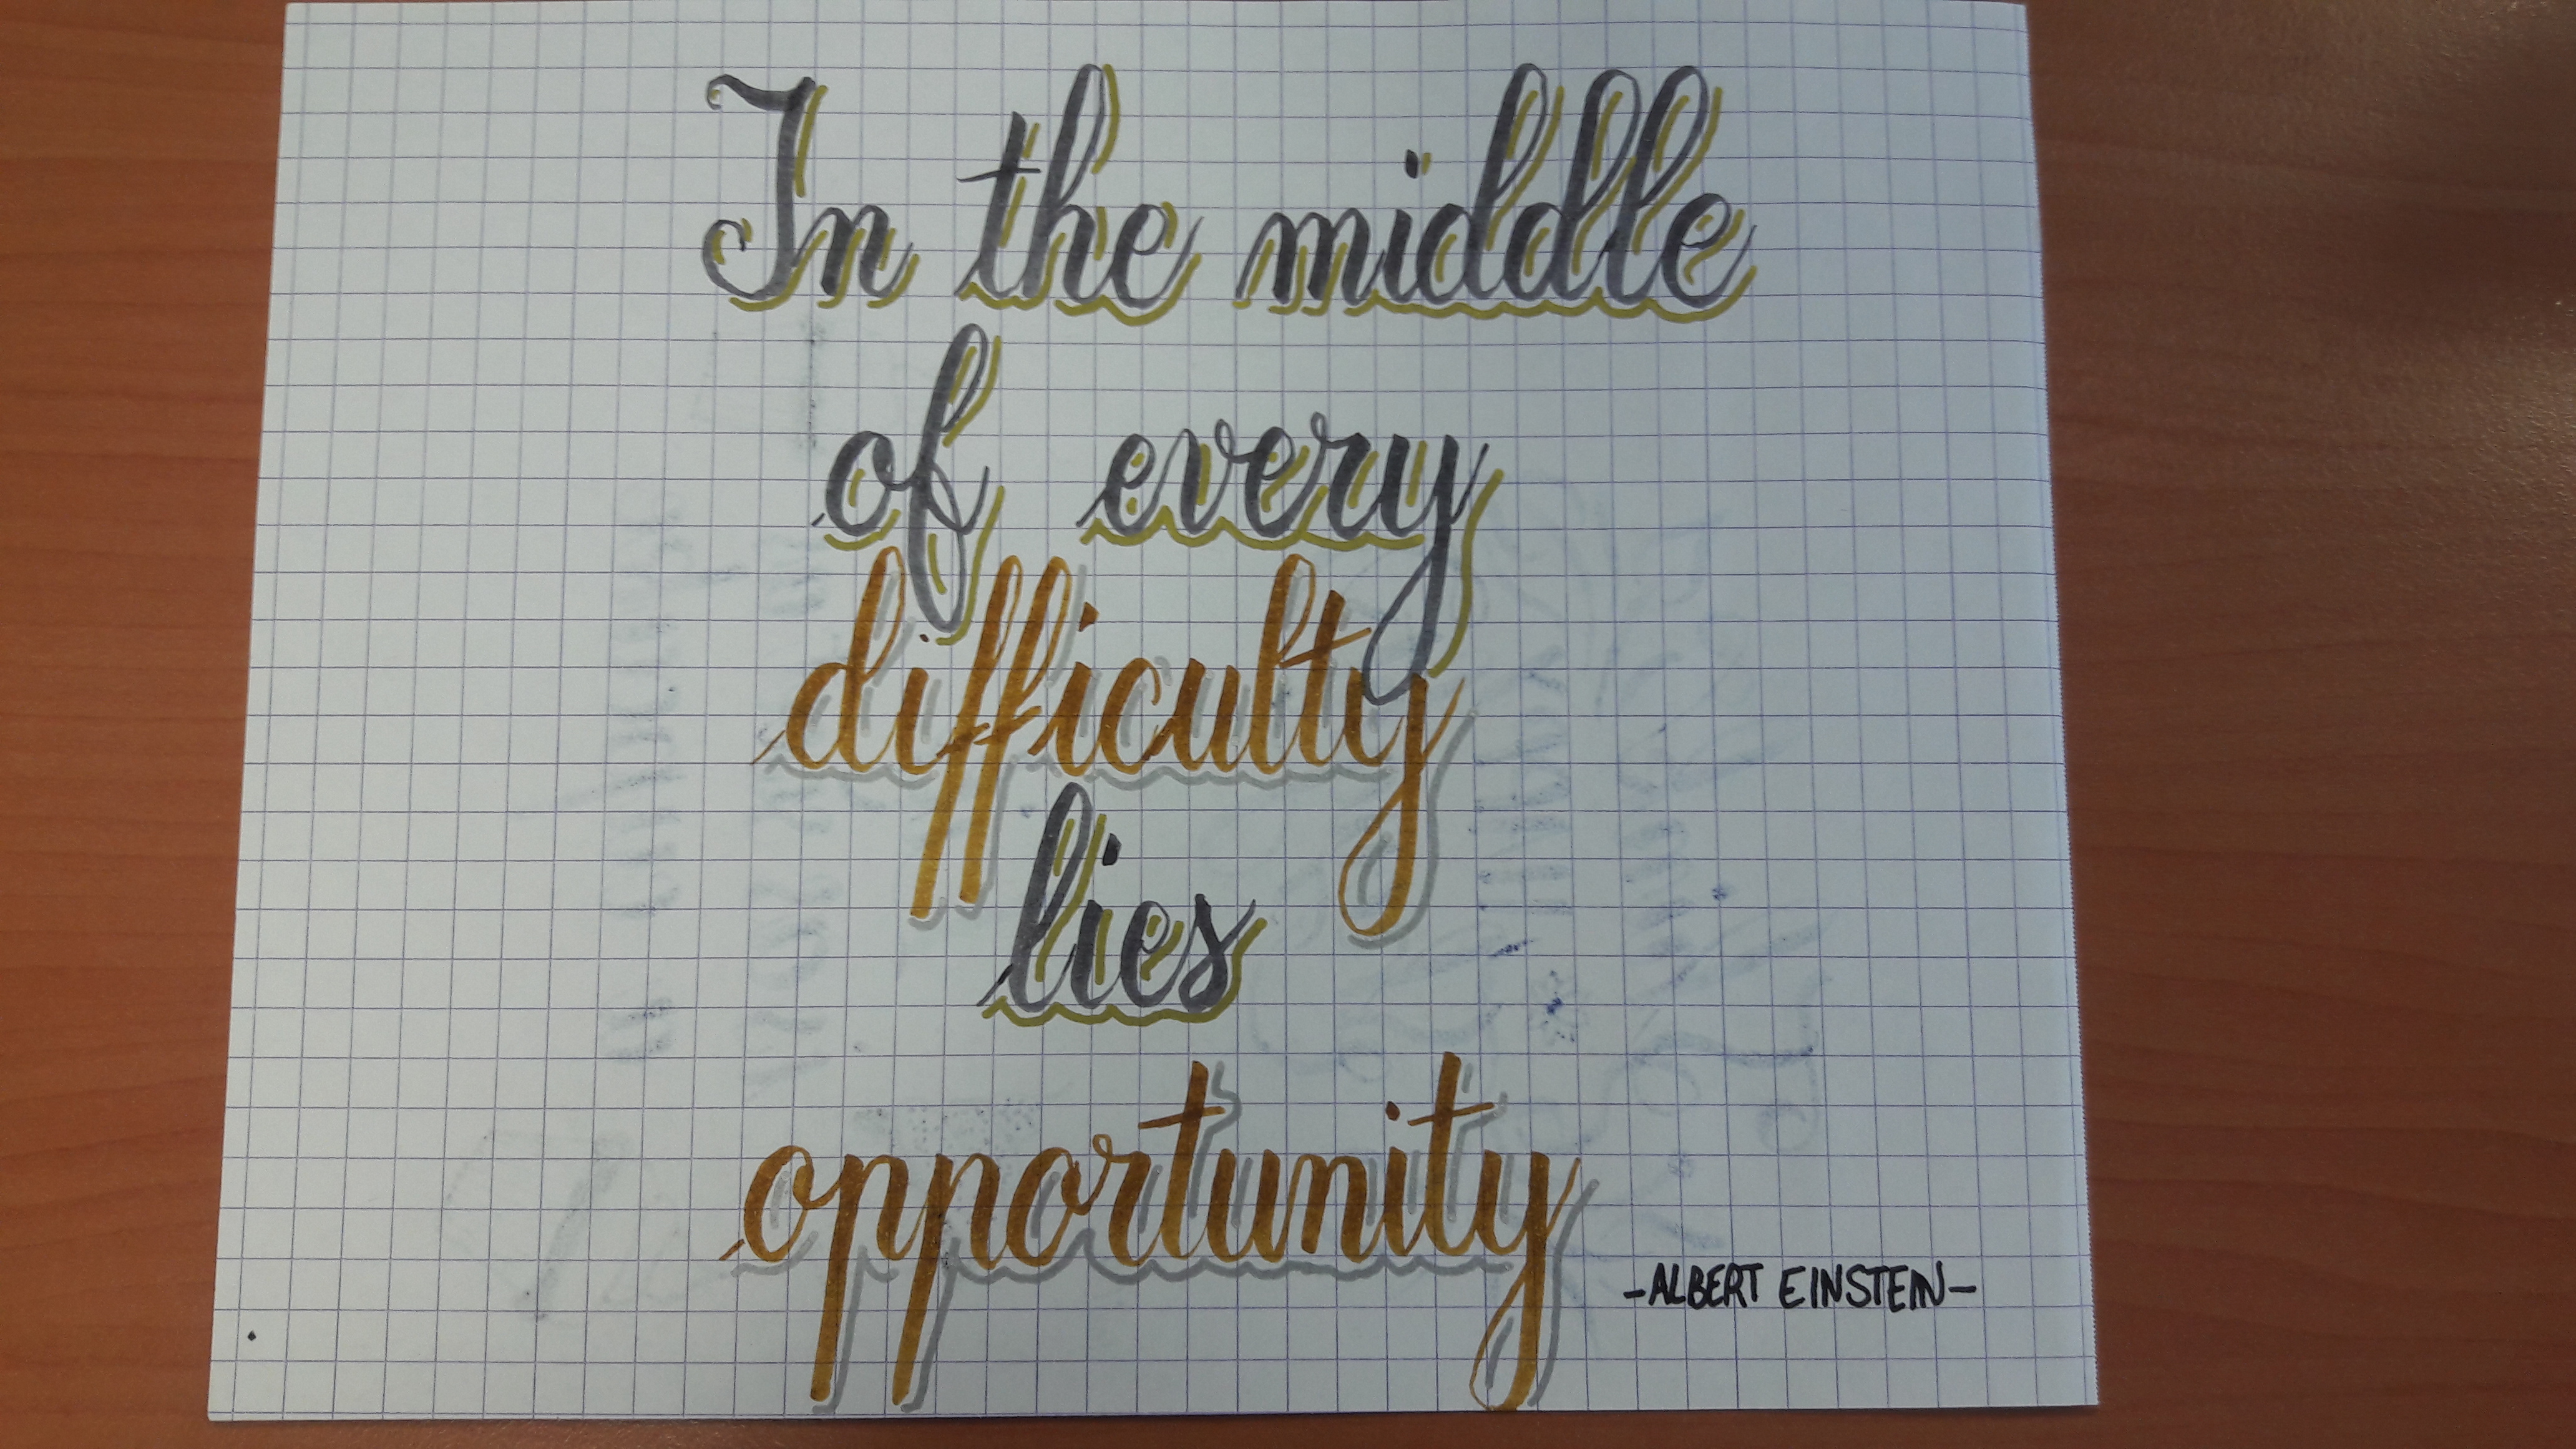 In the middle
of every
difficulty
lies
opportunity
-ALBERT EINSTEIN-